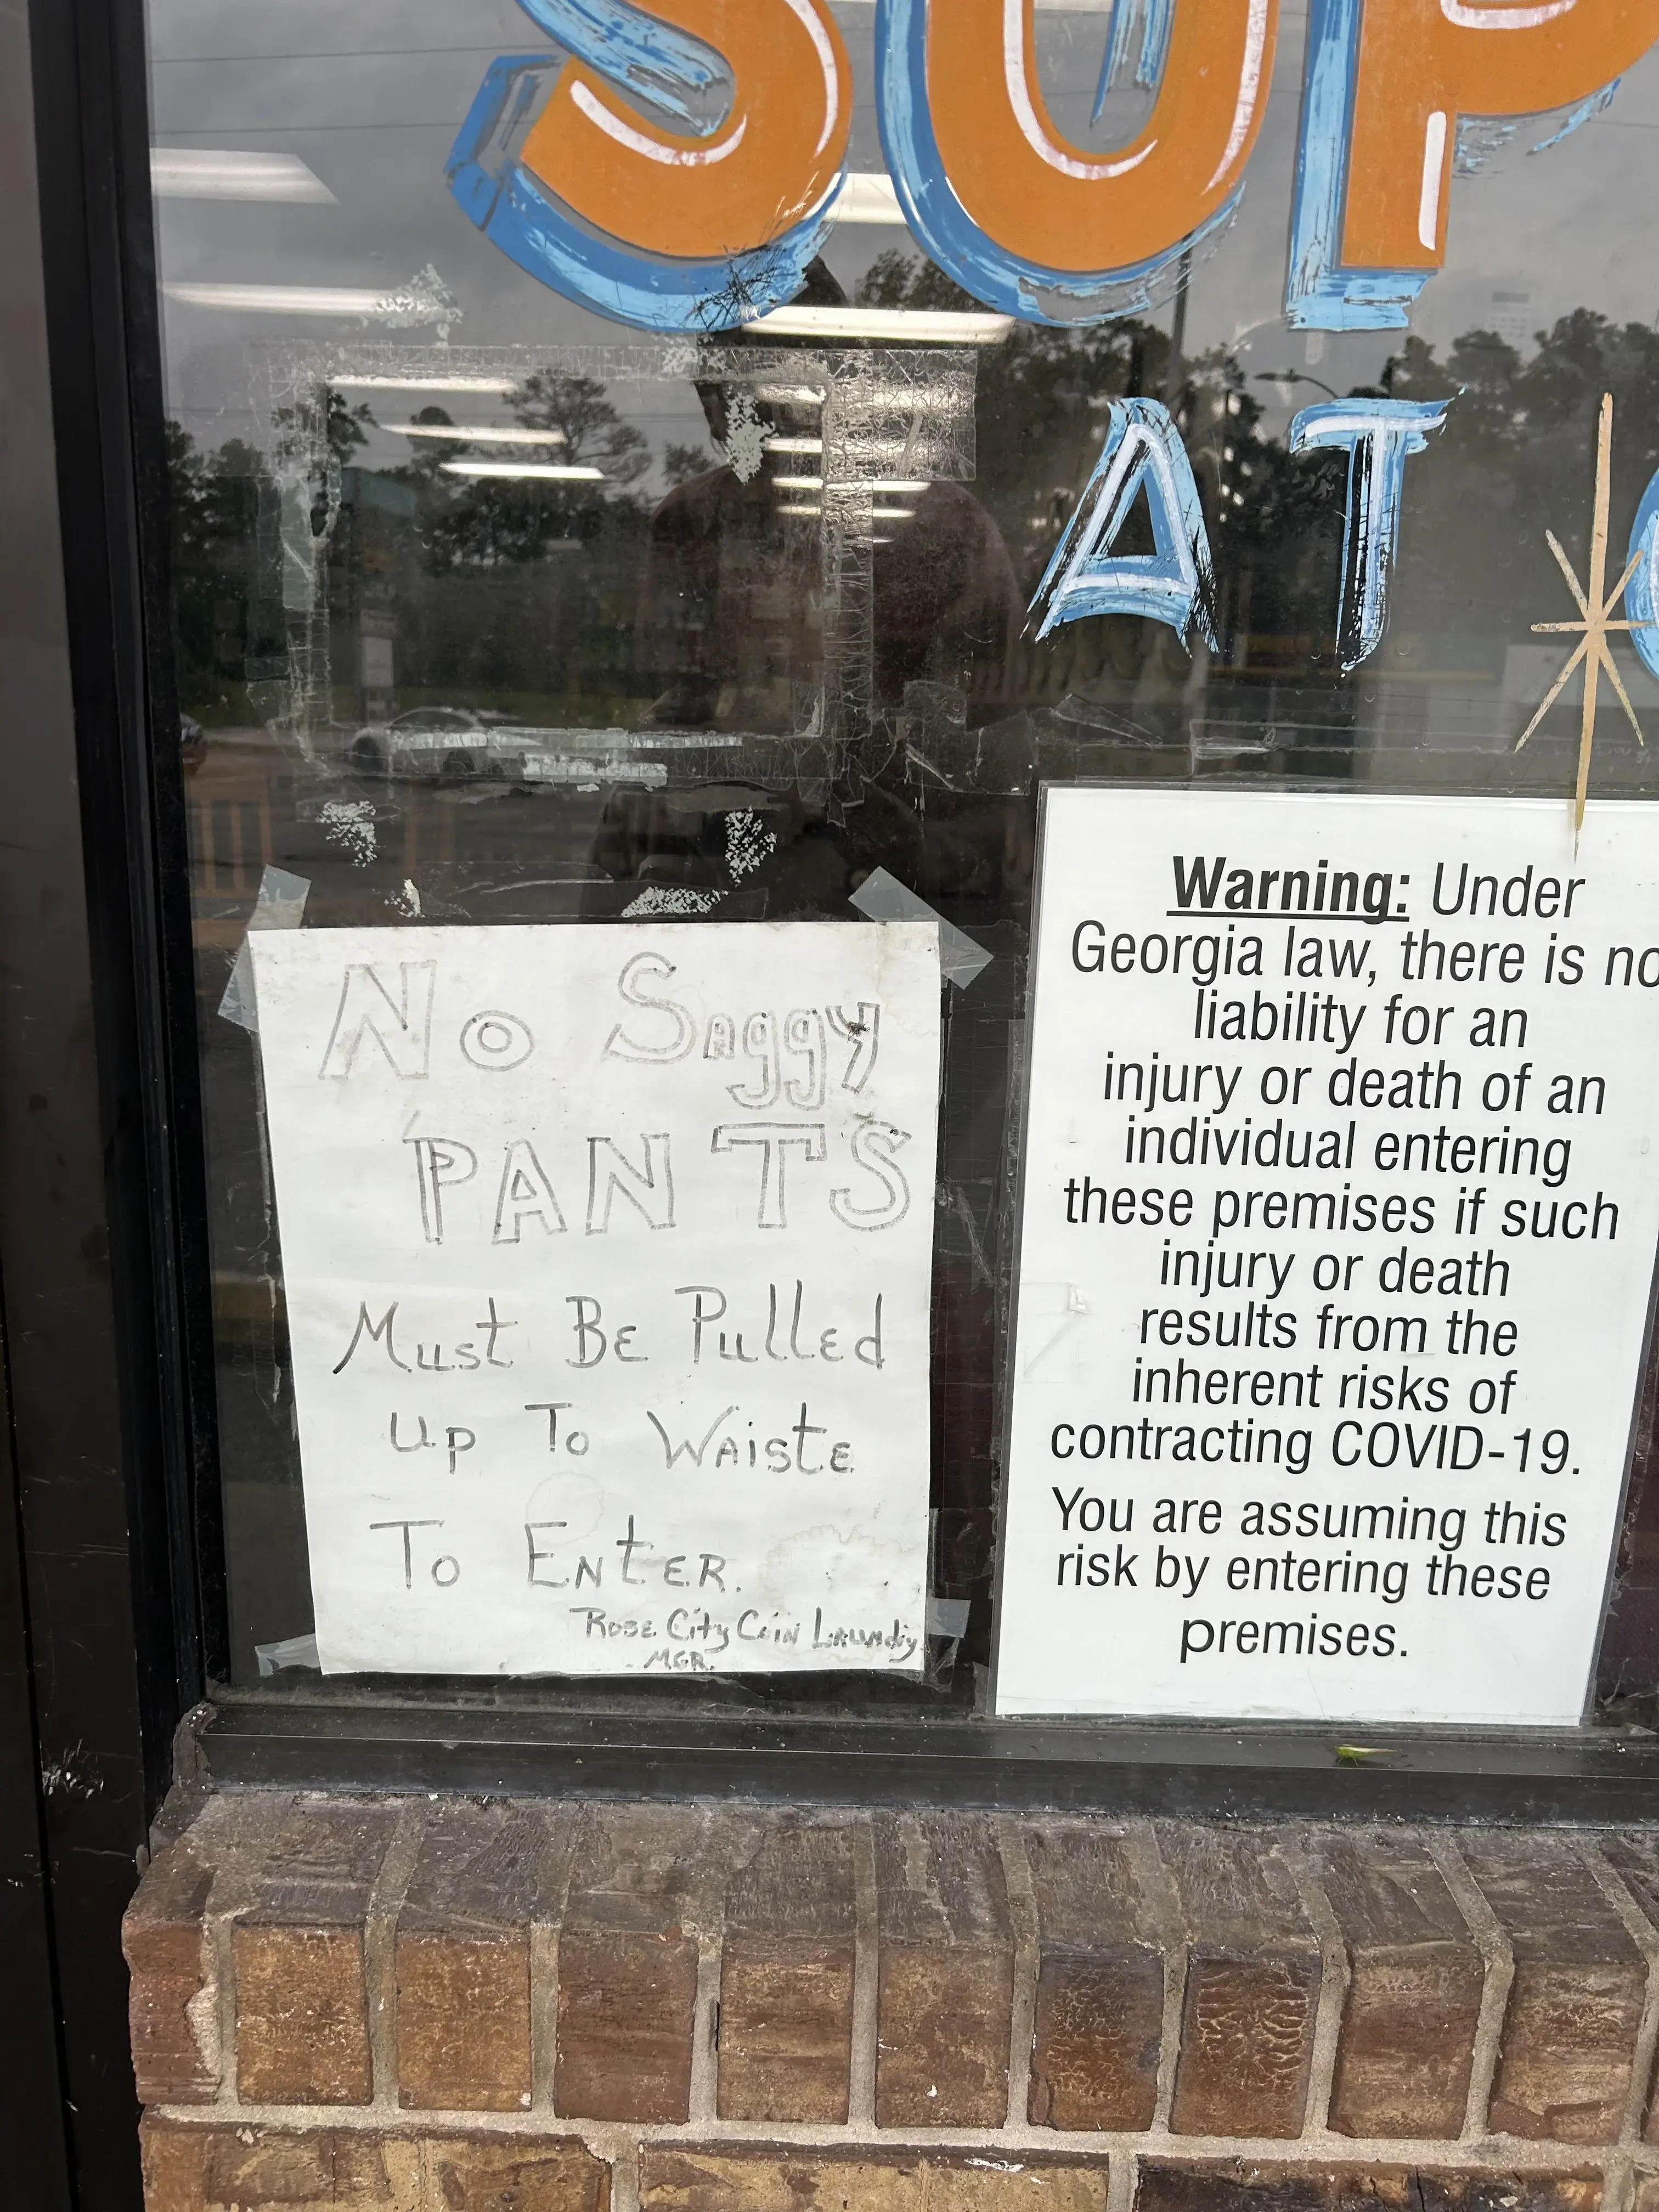 SUP
AT
No Saggy
PANTS
Must Be Pulled
Up To Waiste
To Enter.
Rose City Coin Laundry
MGR.
Warning: Under
Georgia law, there is no
liability for an
injury or death of an
individual entering
these premises if such
injury or death
results from the
inherent risks of
contracting COVID-19.
You are assuming this
risk by entering these
premises.